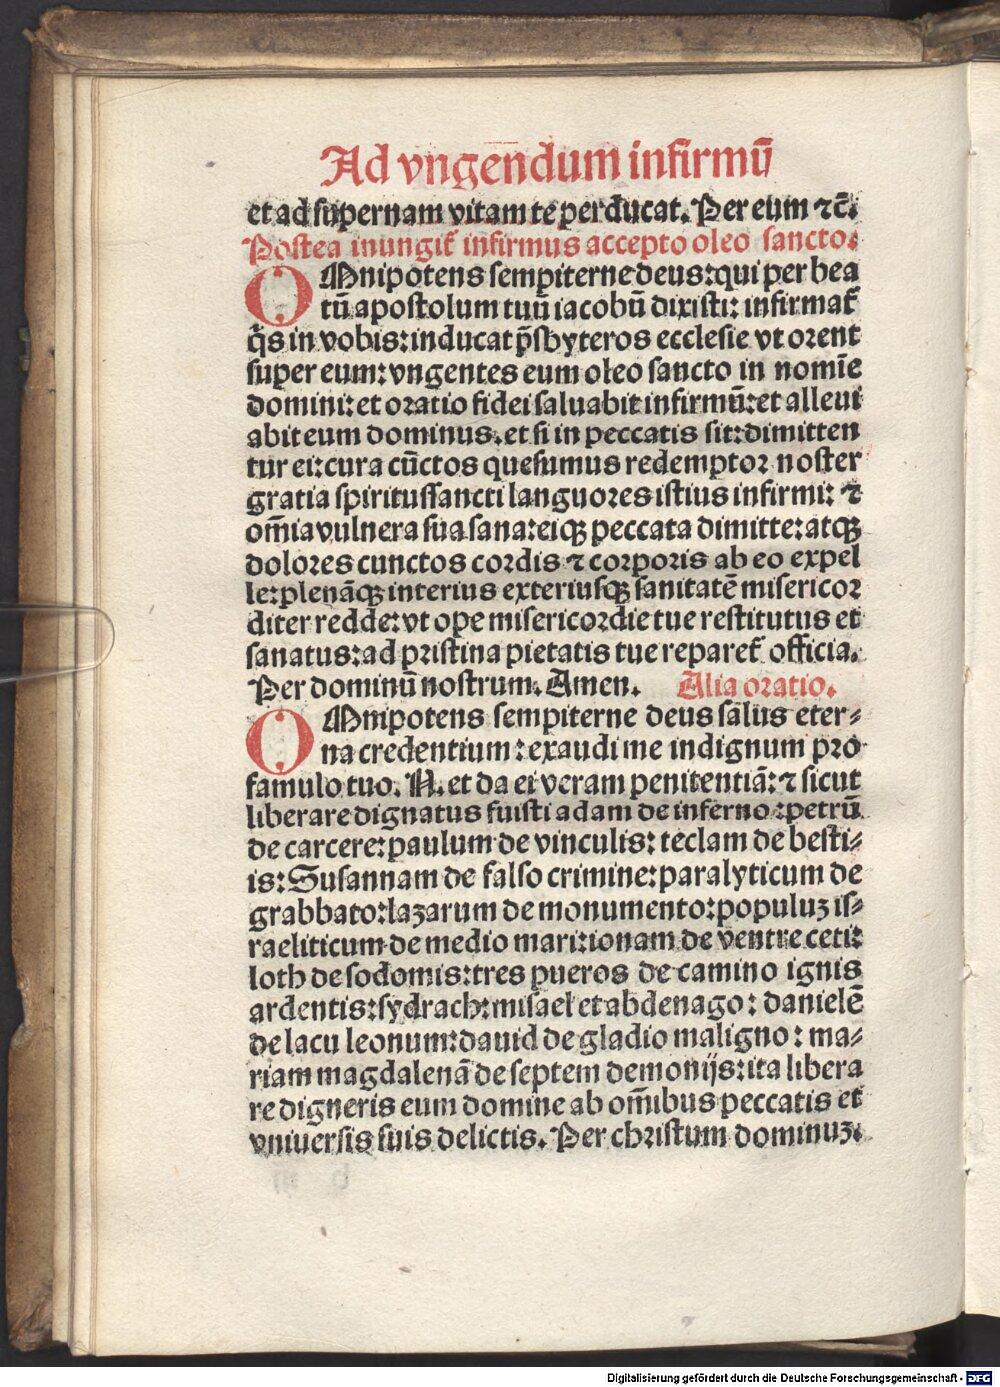 Ad vngendum infirmū
et ad supernam vitam te perducat. Per eum ⁊c̄.
Postea inungit᷑ infirmus accepto oleo sancto.
OMnipotens sempiterne deus: qui per bea
tū apostolum tuū iacobū dixisti: infirmat᷑
q̇s in vobis: inducat p̄sbyteros ecclesie vt orent
super eum: vngentes eum oleo sancto in nomīe
domini: et oratio fidei saluabit infirmū: et alleui
abit eum dominus. et si in peccatis sit: dimitten
tur ei: cura cūctos quesumus redemptor noster
gratia spiritussancti languores istius infirmi: ⁊
om̄ia vulnera sua sana: eiqꝫ peccata dimitte: atqꝫ
dolores cunctos cordis ⁊ corporis ab eo expel
le: plenāqꝫ interius exteriusqꝫ sanitatē misericor
diter redde: vt ope misericordie tue restitutus et
sanatus: ad pristina pietatis tue reparet᷑ officia.
Per dominū nostrum. Amen. Alia oratio.
OMnipotens sempiterne deus salus eter⸗
na credentium: exaudi me indignum pro
famulo tuo. N. et da ei veram penitentiā: ⁊ sicut
liberare dignatus fuisti adam de inferno: petrū
de carcere: paulum de vinculis: teclam de besti⸗
is: Susannam de falso crimine: paralyticum de
grabbato: lazarum de monumento: populuꝫ is⸗
raeliticum de medio mari: ionam de ventre ceti:
loth de sodomis: tres pueros de camino ignis
ardentis: sydrach: misael et abdenago: danielē
de lacu leonum: dauid de gladio maligno: ma⸗
riam magdalenā de septem demonijs: ita libera
re digneris eum domine ab om̄ibus peccatis et
vniuersis suis delictis. Per christum dominuꝫ.
Digitalisierung gefördert durch die Deutsche Forschungsgemeinschaft - DFG